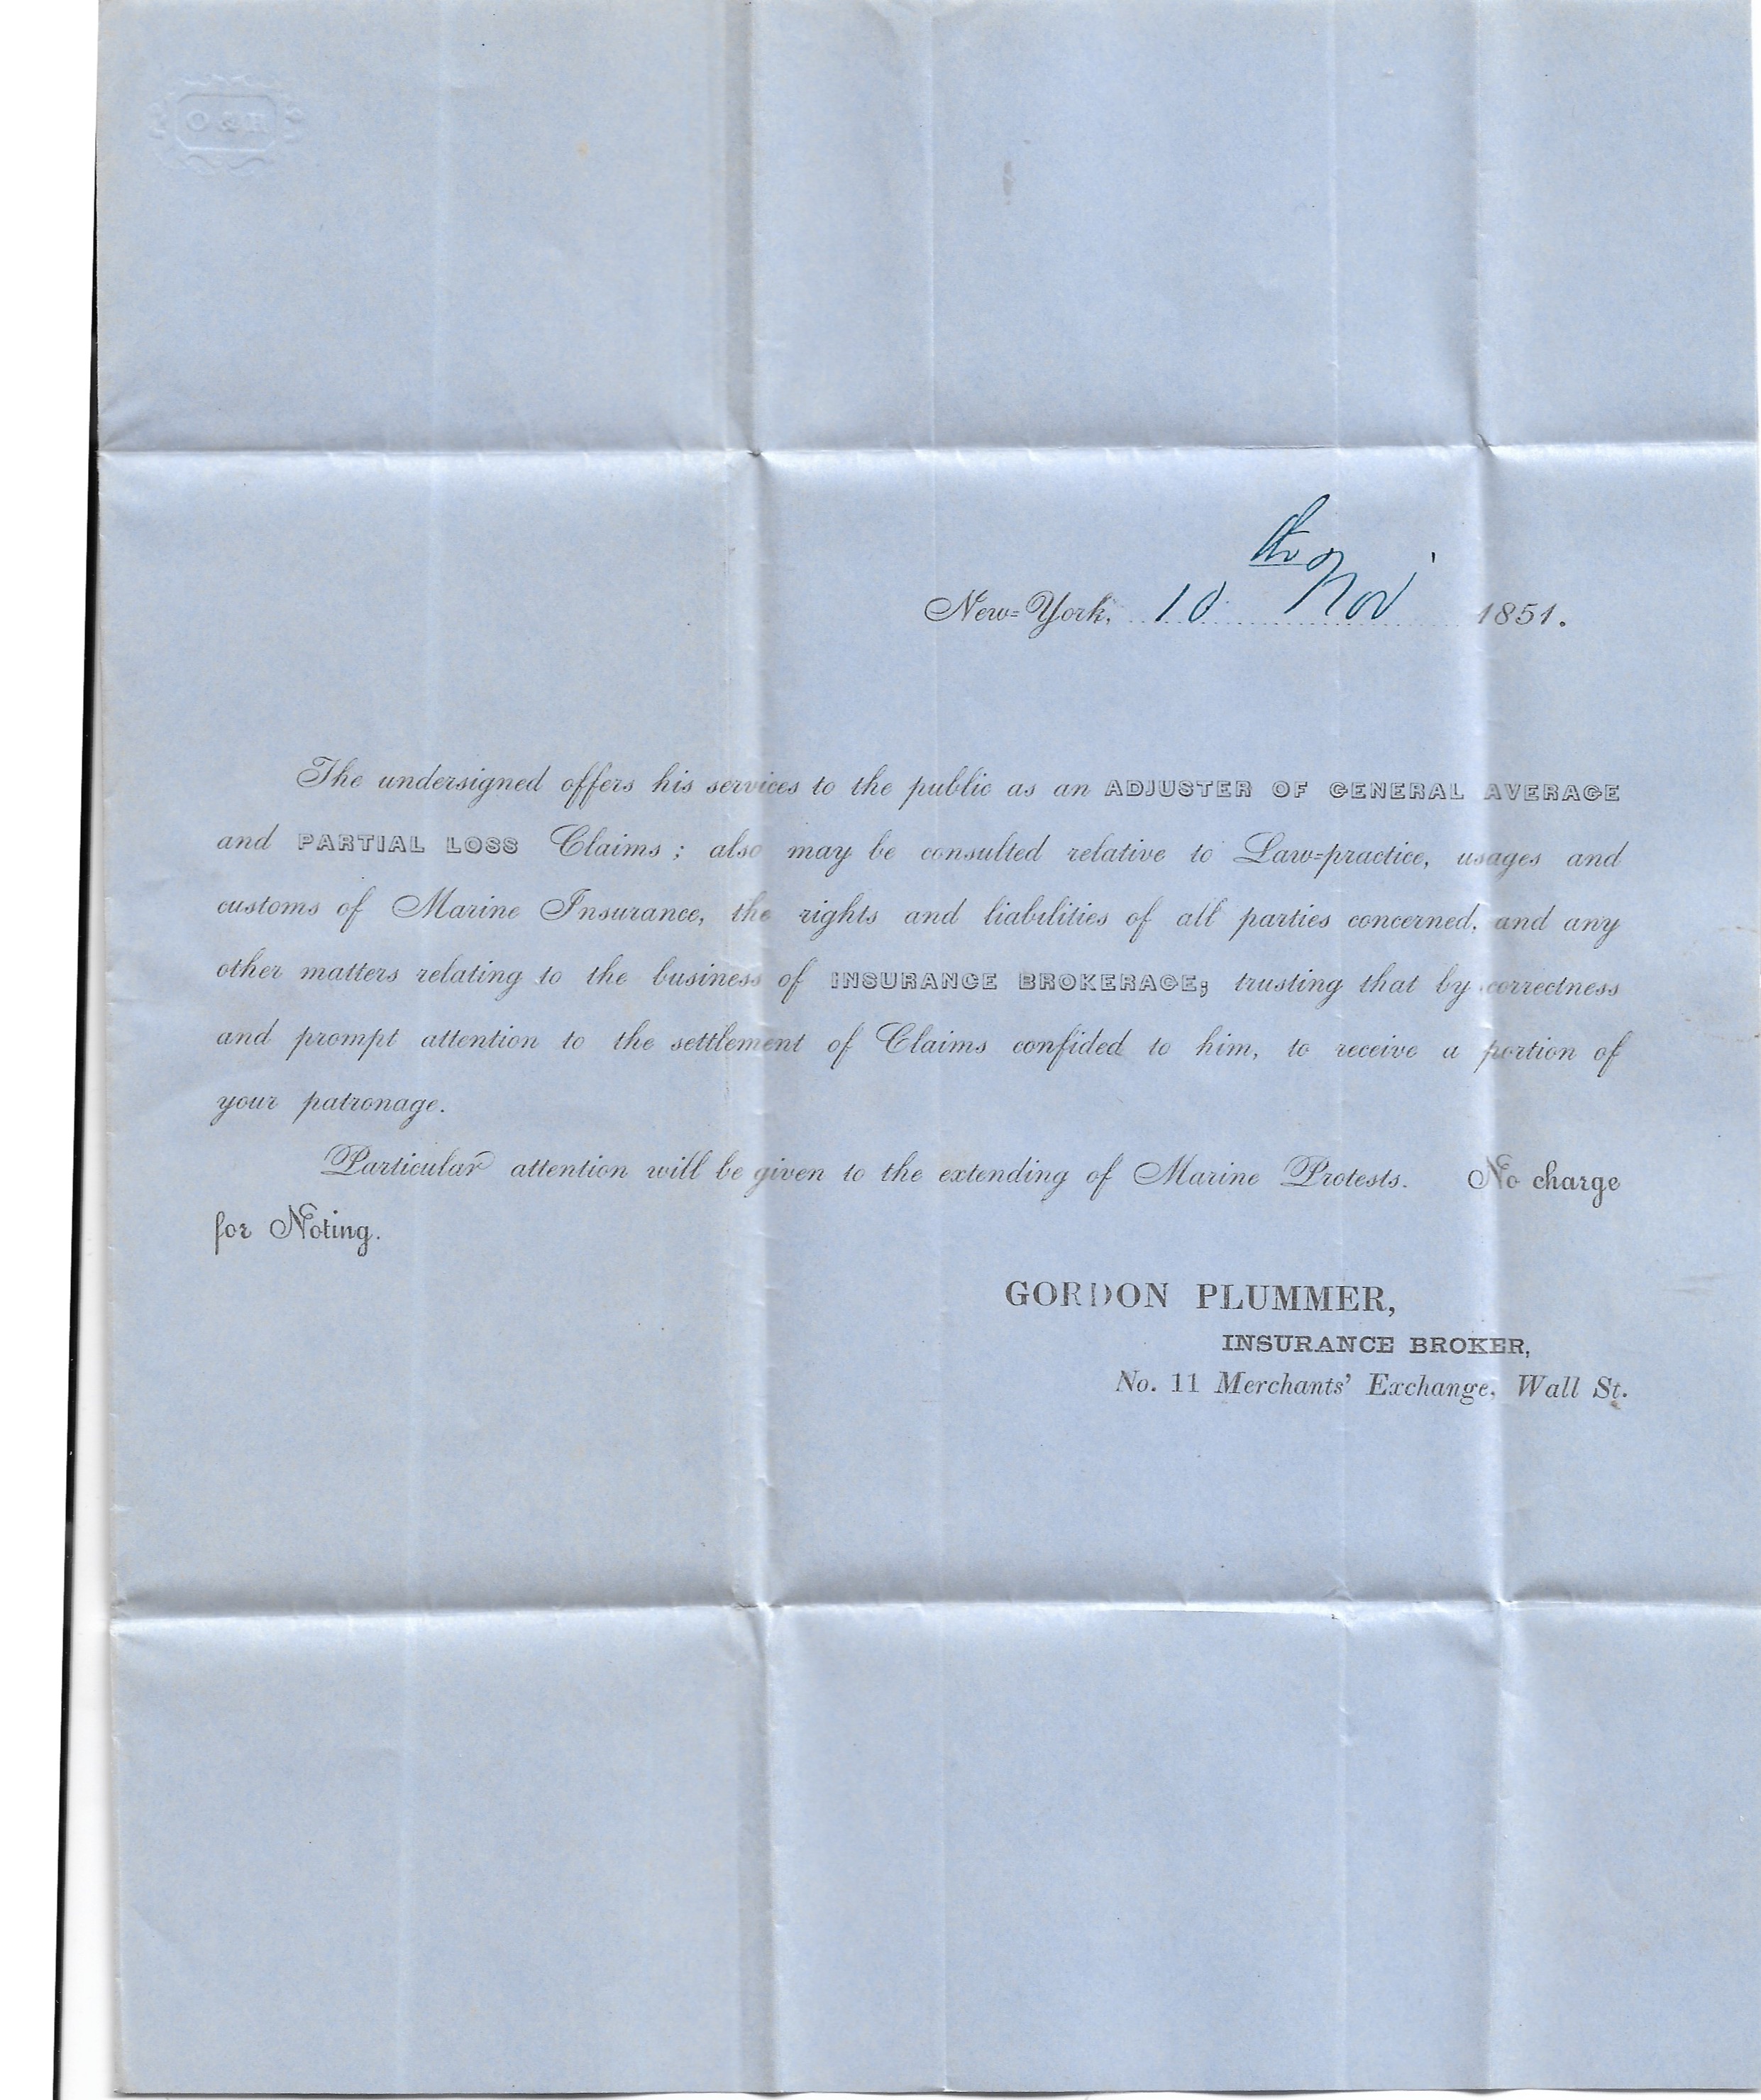 O & H
New-York, 10th Nov' 1851.
The undersigned offers his services to the public as an ADJUSTER OF GENERAL AVERAGE
and PARTIAL LOSS Claims; also may be consulted relative to Law-practice, usages and
customs of Marine Insurance, the rights and liabilities of all parties concerned, and any
other matters relating to the business of INSURANCE BROKERAGE; trusting that by correctness
and prompt attention to the settlement of Claims confided to him, to receive a portion of
your patronage.
Particular attention will be given to the extending of Marine Protests. No charge
for Noting.
GORDON PLUMMER,
INSURANCE BROKER,
No. 11 Merchants' Exchange, Wall St.